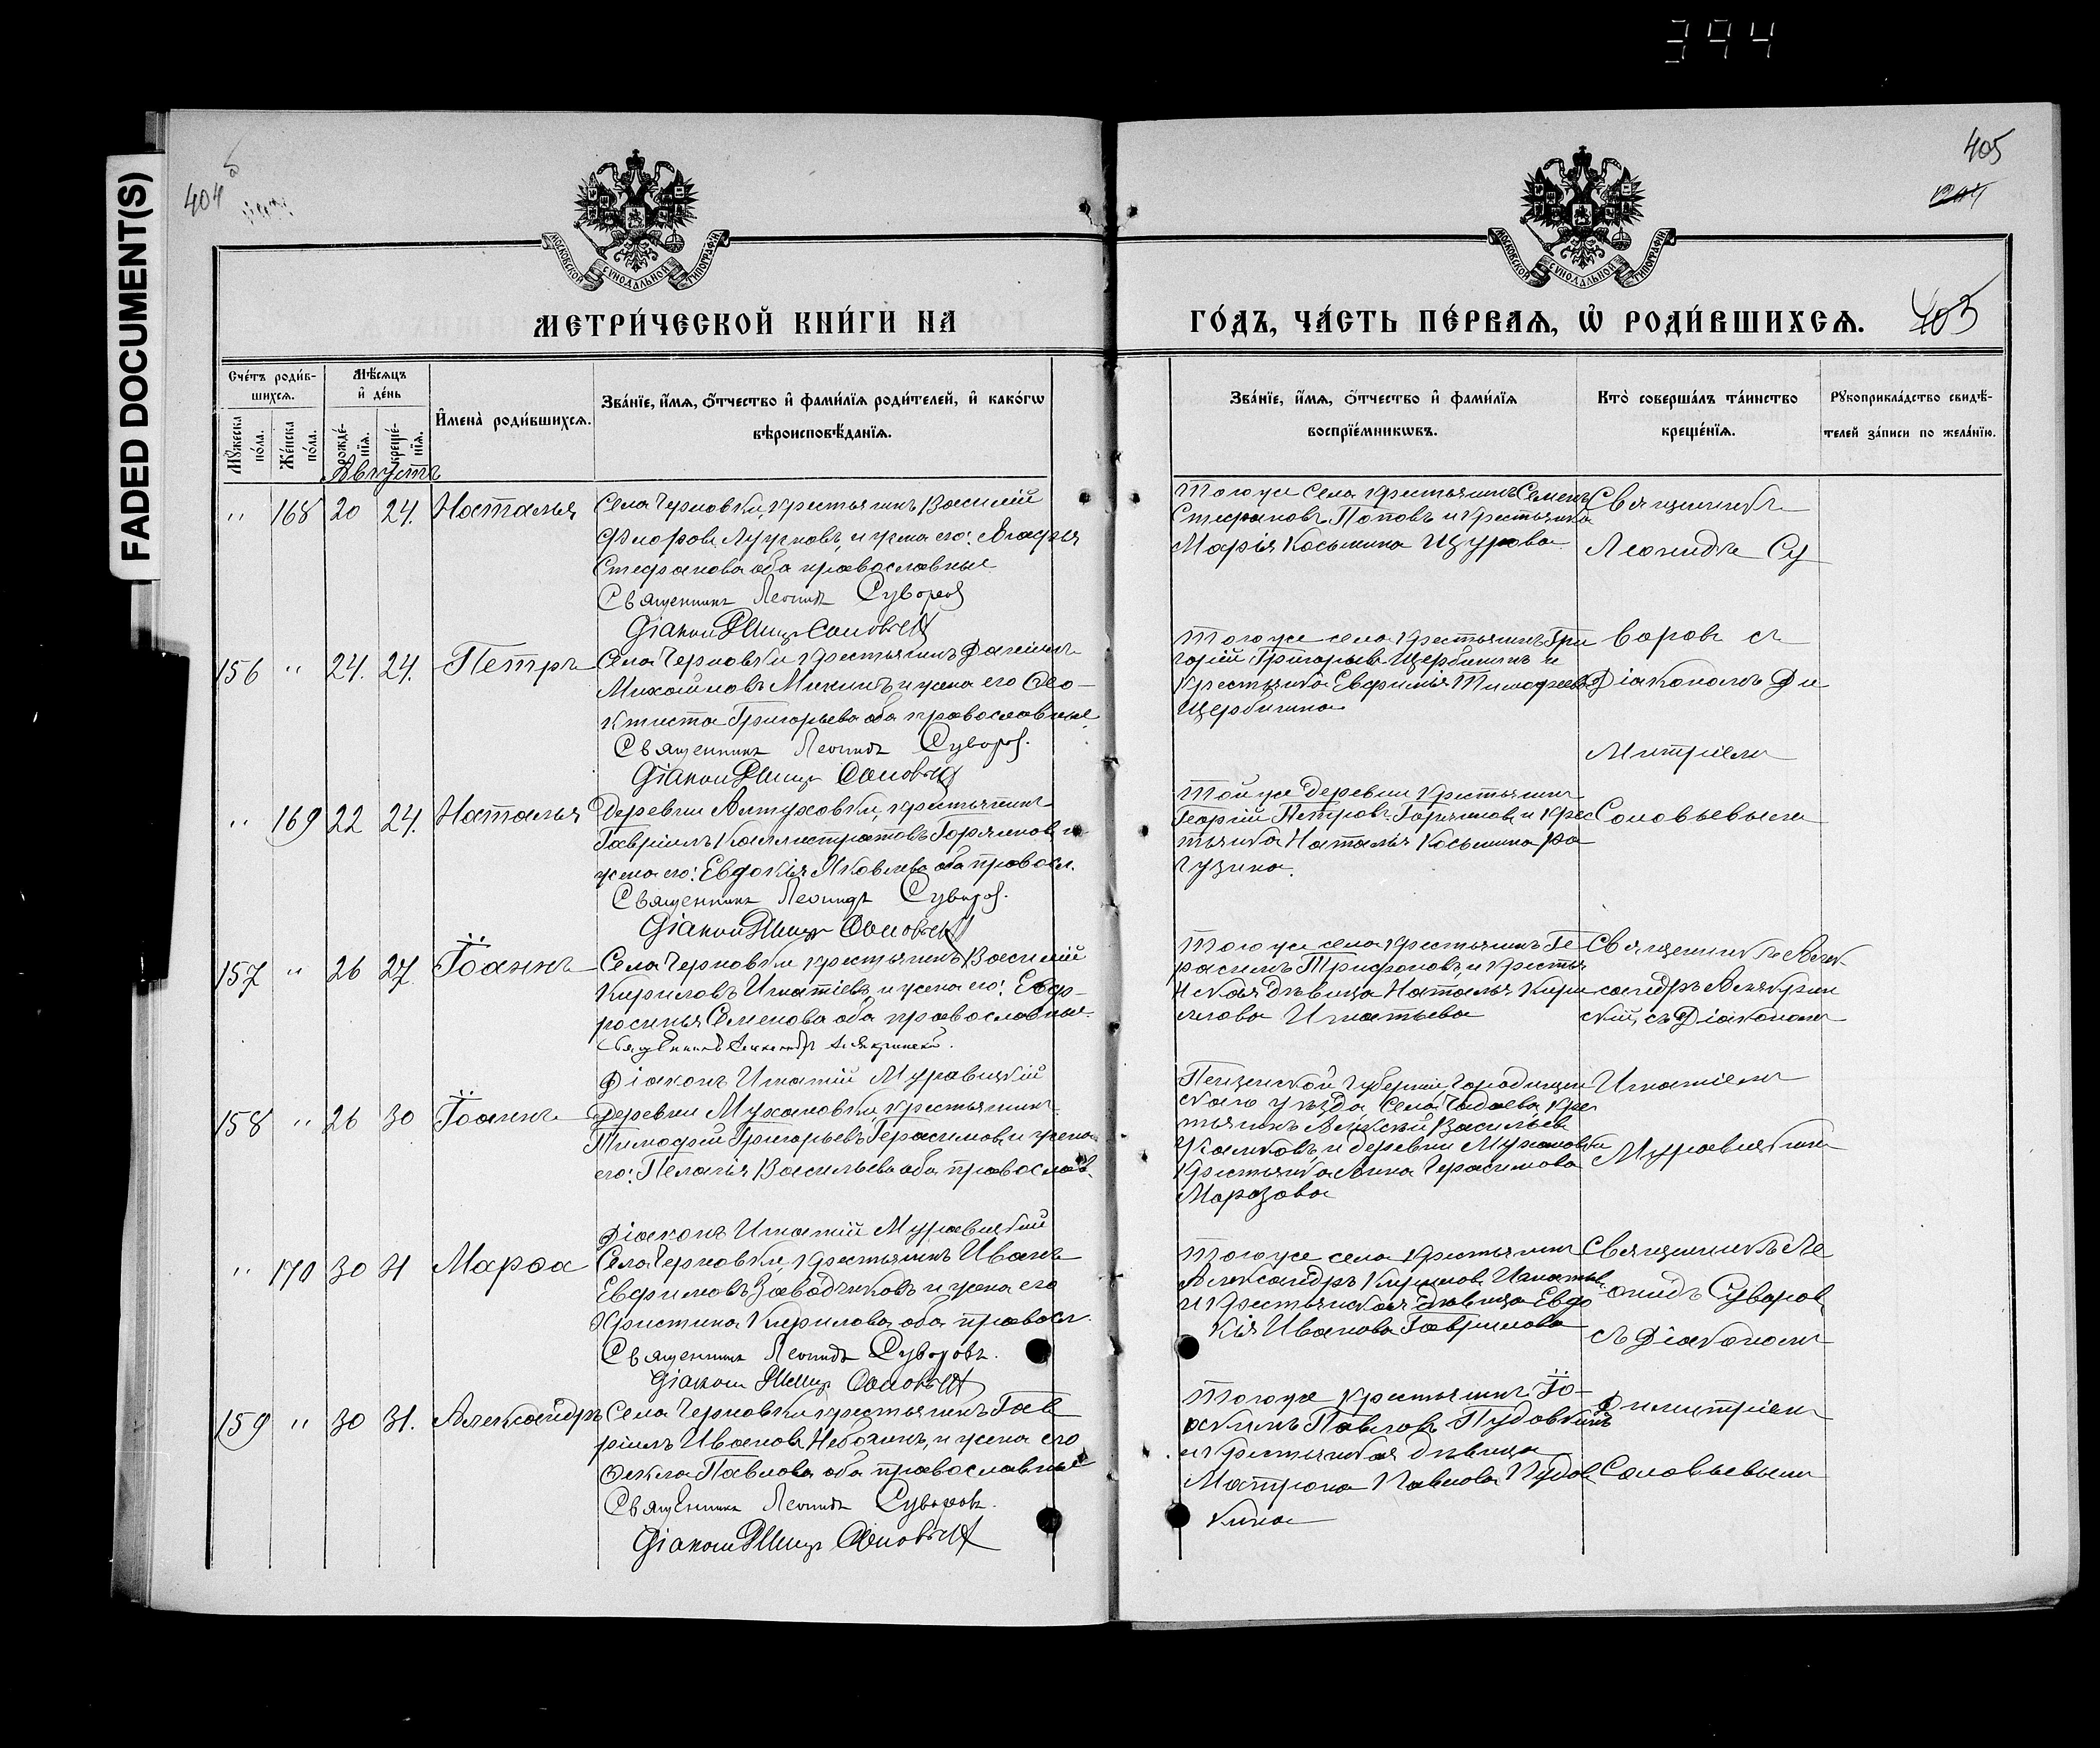 394
FADED DOCUMENT(S)
404
об
405
405
МОСКОВСКОЙ СѴНОДАЛЬНОЙ ТИПОГРАФІИ
МОСКОВСКОЙ СѴНОДАЛЬНОЙ ТИПОГРАФІИ
МЕТРИ́ЧЕСКОЙ КНИ́ГИ НА
ГО́ДЪ, ЧА́СТЬ ПЕ́РВАѦ, Ѡ҆ РОДИ́ВШИХСѦ.
Сче́тъ роди́в-
шихсѧ.
Мꙋ́жеска по́ла.
Же́нска по́ла.
Мѣ́сѧцъ
и҆ де́нь
рожде́-
нїѧ.
креще́-
нїѧ.
И҆мена̀ роди́вшихсѧ.
Зва́нїе, и҆́мѧ, ѻ҆́тчество и҆ фами́лїѧ роди́телей, и҆ како́гѡ
вѣроисповѣ́данїѧ.
Зва́нїе, и҆́мѧ, ѻ҆́тчество и҆ фами́лїѧ
воспрїе́мникѡвъ.
Кто̀ соверша́лъ та́инство
креще́нїѧ.
Рꙋкоприкла́дство свидѣ́-
телей за́писи по жела́нїю.
Августъ
" 168 20 24. Наталья
Села Черновки, крестьянинъ Василій
Флоровъ и жена его: Агафья
Стефанова оба православные
Священникъ Леонидъ Суворовъ
Діаконъ Димитр Соловьевъ
Тогоже села крестьянинъ Семенъ
Стефановъ Поповъ и крестьянка
Марія Косьмина Щурова
Священникъ
Леонидъ Су
156 " 24. 24. Петръ
Села Черновки крестьянинъ Даніилъ
Михайловъ Микинъ и жена его Ѳео-
ктиста Григорьева оба православные
Священникъ Леонидъ Суворов.
Діаконъ Димитр Соловьевъ
Тогоже села крестьянинъ Гри
горій Григорьев Щербининъ и
крестьянка Евфимія Тимофеева
Щербинина
воровъ съ
Діакономъ Ди
митріемъ
" 169 22 24. Наталья
Деревни Алтуховки, крестьянинъ
Гавріилъ Каллистратовъ Горяиновъ и
жена его: Евдокія Яковлева оба правосл.
Священникъ Леонидъ Суворов.
Діаконъ Димитр Соловьевъ
Тойже деревни крестьянинъ
Георгій Петровъ Горяиновъ и крес
тьянка Наталья Косьмина Ра
гузина.
Соловьевымъ
157 " 26 27 Іоаннъ
Села Черновки крестьянинъ Василій
Кириловъ Игнатіевъ, и жена его: Евф-
росинья Семенова оба православные.
Священникъ Александръ Алякринскій.
Діаконъ Игнатій Муравицкій
Тогоже села крестьянинъ Ге
расимъ Трифоновъ, и крестья
нская дѣвица Наталья Кири
ллова Игнатьева
Священникъ Алек
сандръ Алякрин
скій, съ Діакономъ
158 " 26 30 Іоаннъ
Деревни Мухановки, крестьянинъ
Тимофей Григорьевъ Герасимовъ и жена
его: Пелагія Васильева оба православ.
Діаконъ Игнатій Муравицкій
Пензенской Губерніи, Городищен
скаго уѣзда, Села Чадаева крес
тьянинъ Алексѣй Васильев
и деревни Мухановки
крестьянка Анна Герасимова
Марозова
Игнатіемъ
Муравицкимъ
" 170 30 31 Марѳа
Села Черновки, крестьянинъ Иванъ
Евфимовъ Заводчиковъ и жена его
Христина Кирилова оба правосл.
Священникъ Леонидъ Суворовъ.
Діаконъ Димитр Соловьевъ
Тогоже села крестьянинъ
Александръ Кириловъ Игнатьев
и крестьянская дѣвица Евдо
кія Иванова Гаврилова
Священникъ Ле
онидъ Суворов
съ Діакономъ
159 " 30 31. Александръ
Села Черновки крестьянинъ Гав
ріилъ Ивановъ и жена его
Ѳекла Павлова оба православные
Священникъ Леонидъ Суворовъ.
Діаконъ Димитр Соловьевъ
Тогоже крестьянинъ Іо-
акимъ Павловъ Пудовкинъ
и крестьянская дѣвица
Матрона Павлова Пудов
кина
Димитріемъ
Соловьевымъ